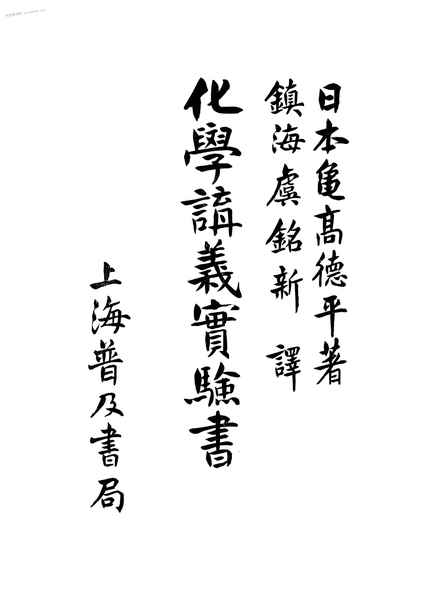 日本亀高德平著
鎮海虞銘新譯
化學講義實驗書
上海普及書局